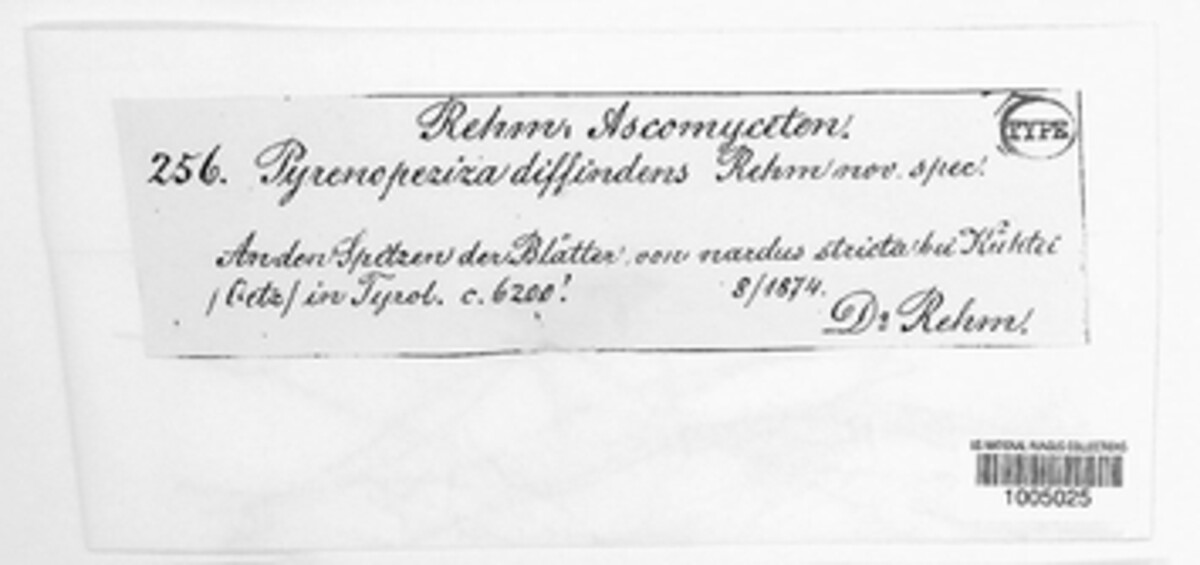 Rehm, Ascomyceten.
TYPE
256. Pyrenopeziza diffindens Rehm nov. spec.
An den Spitzen der Blätter von nardus stricta bei Kühtei
/Oetz/ in Tyrol. c. 6200! 8/1874.
Dr Rehm.
US NATIONAL FUNGUS COLLECTIONS
1005025